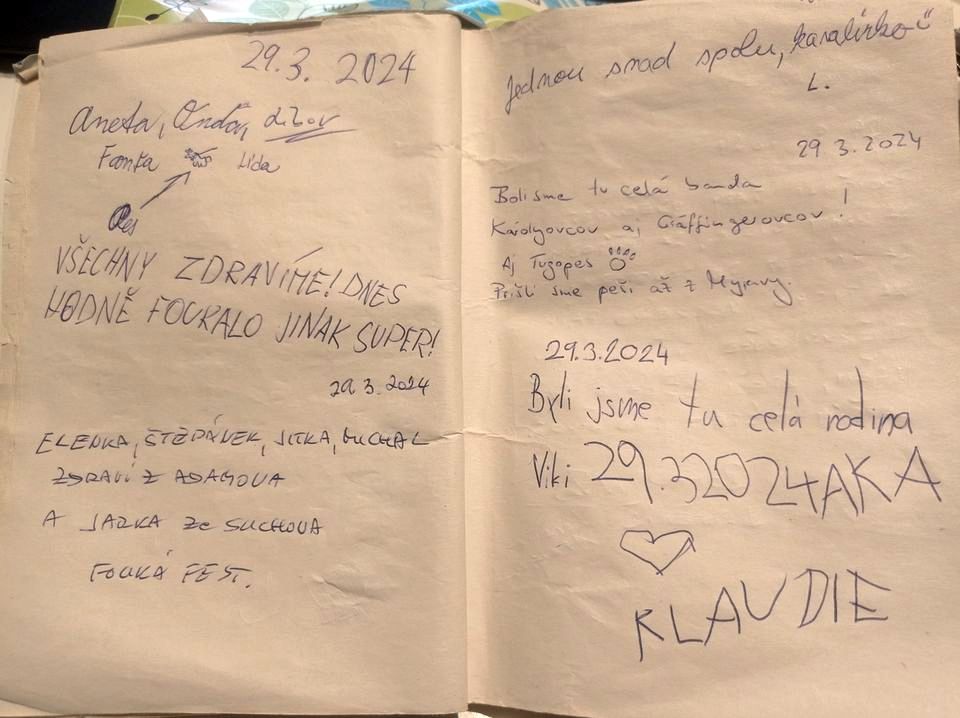 29.3. 2024
Aneta, Ondra, Libor
Fanka Lída
Pes
VŠECHNY ZDRAVÍME! DNES
HODNĚ FOUKALO JINAK SUPER!
29.3.2024
ELENKA, ŠTĚPÁNEK, JITKA, MICHAL
ZDRAVÍ Z ADAMOVA
A JARKA ZE SUCHOVA
FOUKÁ FEST.
Jednou snad spolu,
L.
29 3.2024
Boli sme tu celá banda
Károlyovcov aj Gráffingerovcov!
Aj Tugopes
Prišli sme peši až z Myjavy.
29.3.2024
Byli jsme tu celá rodina
Viki 29.32024AKA
KLAUDIE